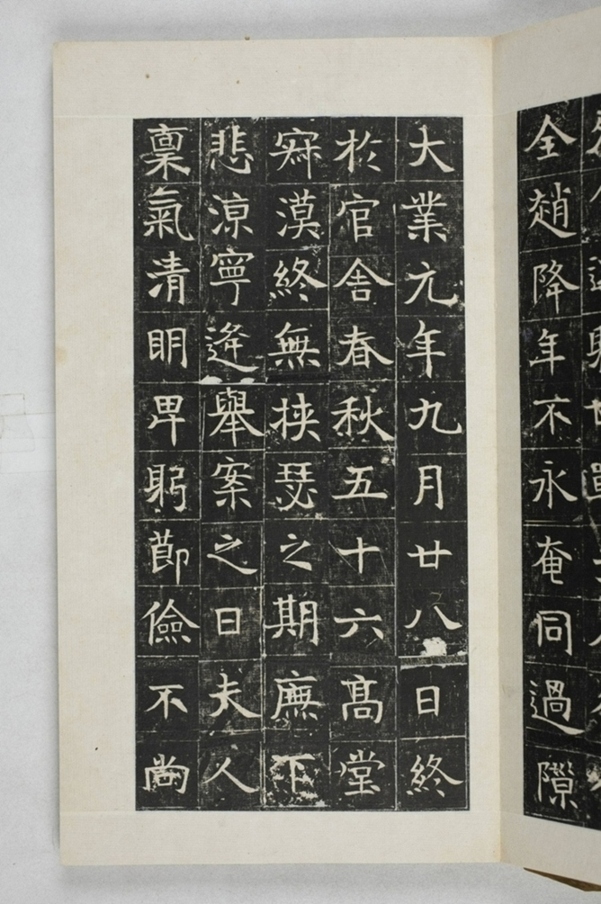 全趙降年不永奄同過隙
大業元年九月廿八日終
於官舍春秋五十六高堂
寂漠終無挾瑟之期廡下
悲涼寧逢舉案之日夫人
稟氣清明畀躬節儉不尚